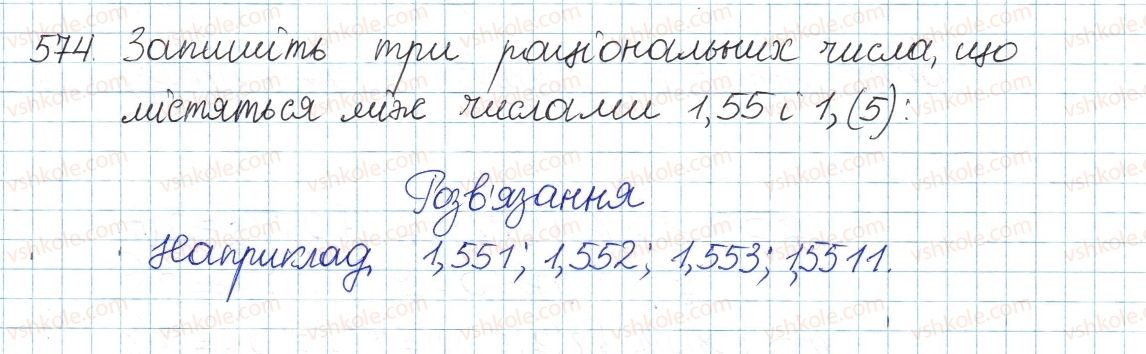 574. Запишіть три раціональних числа, що
містяться між числами 1,55 і 1,(5):
Розв'язання
Наприклад, 1,551; 1,552; 1,553; 1,5511.